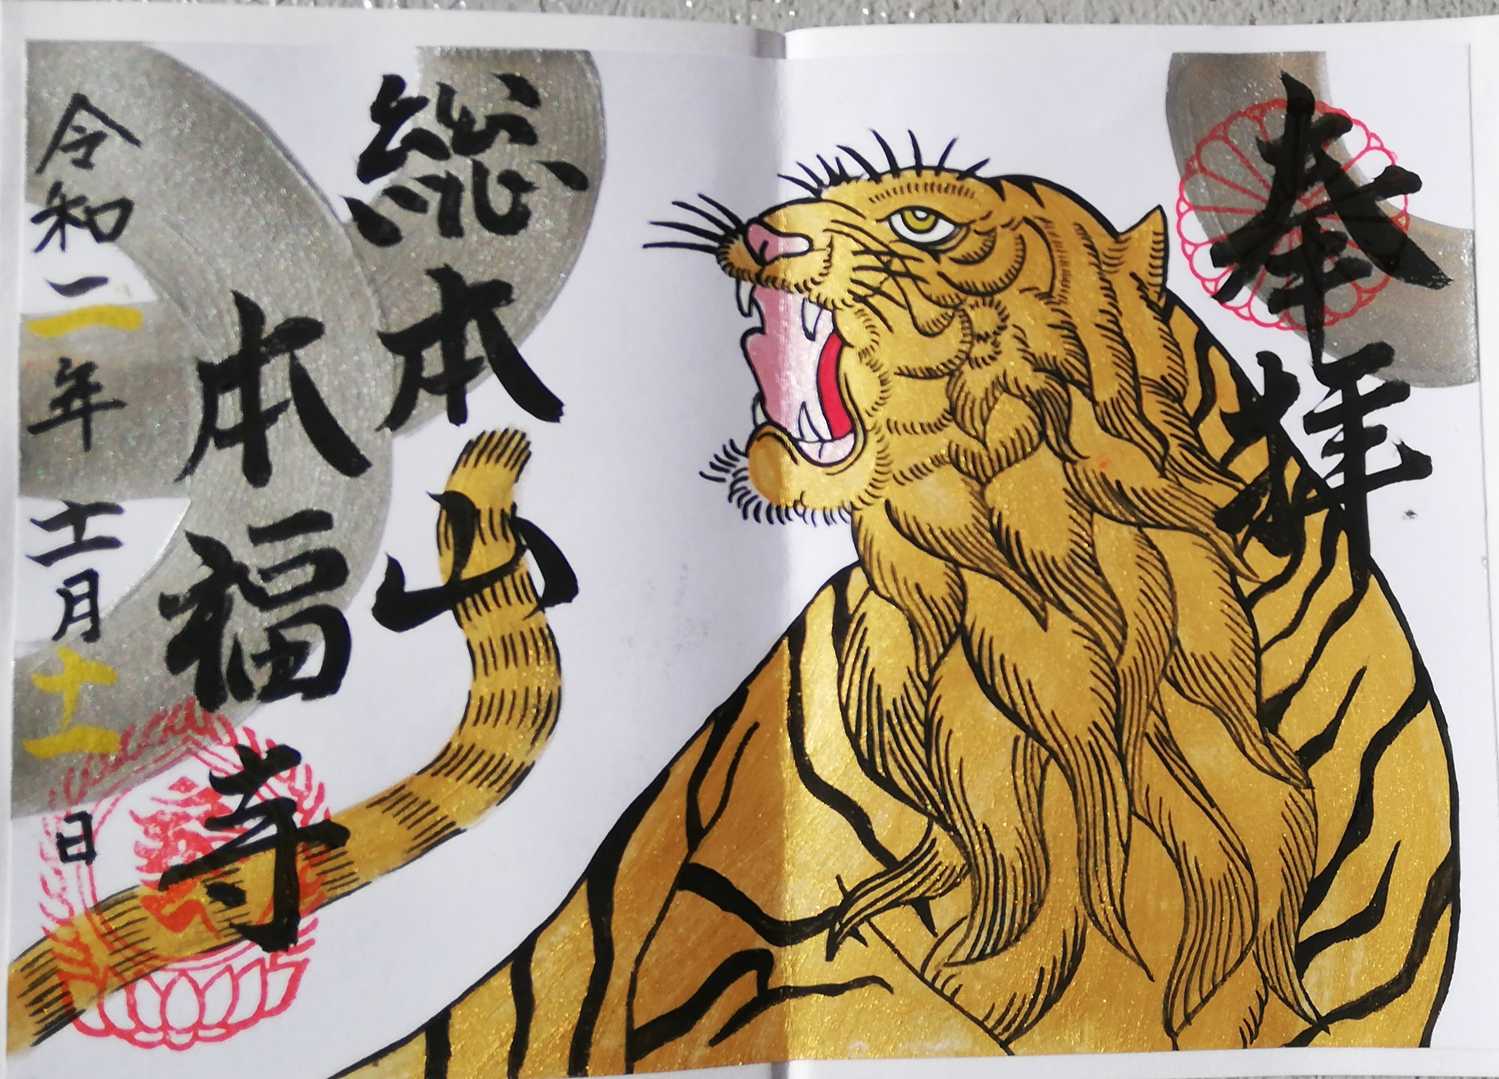 奉拝
総本山
本福寺
令和二年十一月十一日